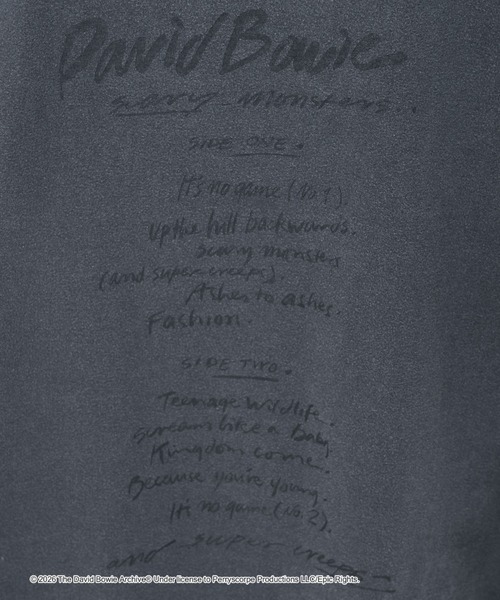 David Bowie.
scary monsters..
SIDE ONE.
It's no game (No.1).
up the hill backwards.
Scary monsters
(and super creeps).
Ashes to ashes.
Fashion.
SIDE TWO.
Teenage Wildlife.
Scream like a Baby
Kingdom come.
Because you're young.
It's no game (No.2).
and super creeps
© 2026 The David Bowie Archive® Under license to Perryscope Productions LLC/Epic Rights.